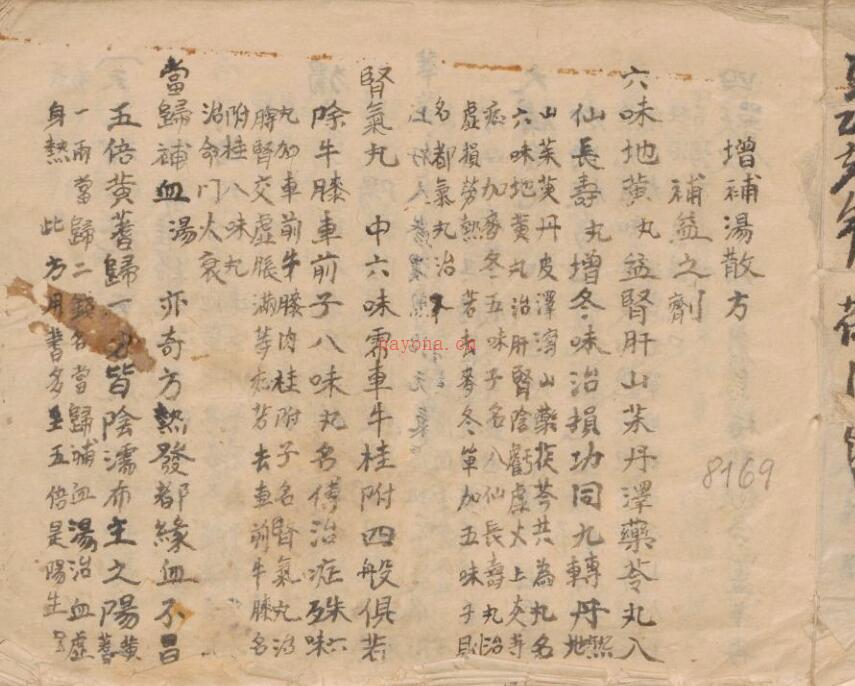 增補湯散方
補益之劑
六味地黃丸益腎肝山茱丹澤藥苓丸八
仙長壽丸增冬味治損功同九轉丹
熟地
山茱萸丹皮澤瀉山藥茯苓共為丸名
六味地黃丸治肝腎陰虧虛火上炎等
症加麥冬五味子名八仙長壽丸治
虛損勞熱若去麥冬單加五味子則
名都氣丸治
腎氣丸 中六味需車牛桂附四般俱若
除牛膝車前子八味丸名傳治症殊
六味
丸加車前牛膝肉桂附子名腎氣丸治
脾腎交虛脹滿等症若去車前牛膝名
附桂八味丸
治命門火衰
當歸補血湯 亦奇方熱發都緣血不昌
五倍黃蓍歸一分皆陰濡布主之陽
黃蓍
一兩當歸二錢名當歸補血湯治血虛
身熱 此方用蓍多至五倍是陽生
8169
nayona.cn